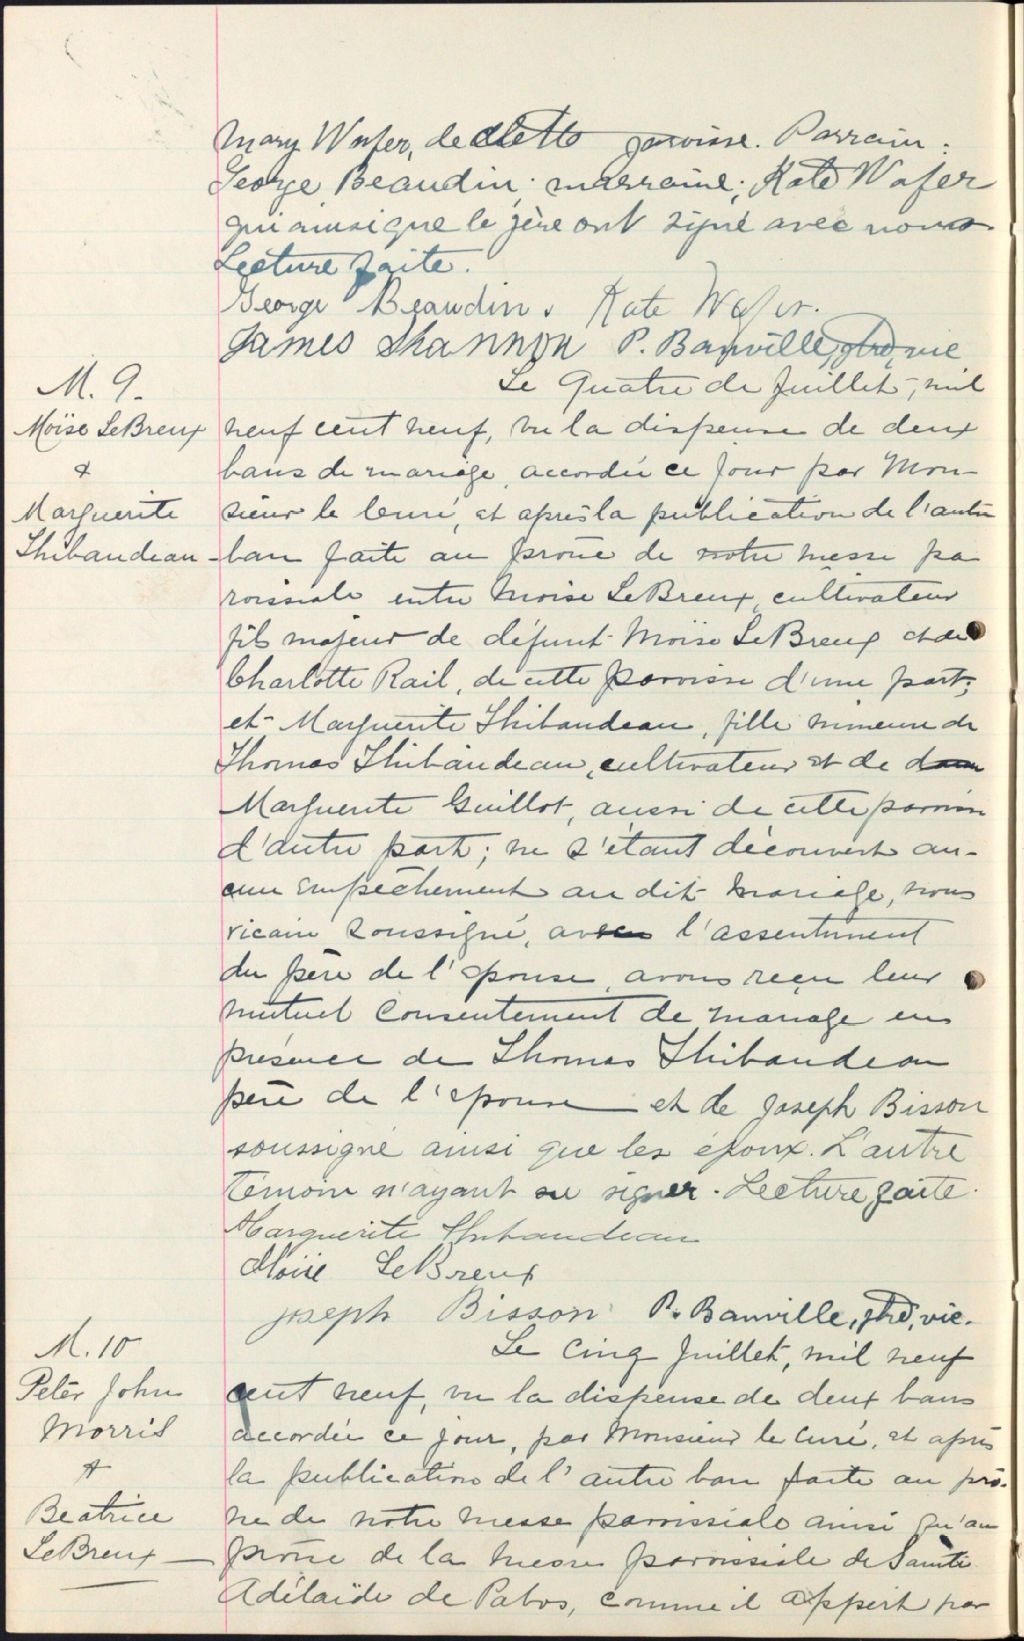 Mary Wafer, de cette paroisse. Parrain:
George Beaudin; marraine; Kate Wafer
qui ainsi que le père ont signé avec nous
Lecture faite.
George Beaudin. Kate Wafer.
James Shannon P. Banville, ptre, vic
M. 9.
Moïse LeBreux
&
Marguerite
Thibaudeau
Le Quatre de Juillet, mil
neuf cent neuf, vu la dispense de deux
bans de mariage accordée ce jour par Mon-
sieur le Curé, et après la publication de l'autre
ban faite au prône de notre messe pa
roissiale entre Moïse LeBreux, cultivateur
fils majeur de défunt Moïse LeBreux et de
Charlotte Rail, de cette paroisse d'une part;
et Marguerite Thibaudeau, fille mineure de
Thomas Thibaudeau, cultivateur et de
Marguerite Guillot, aussi de cette paroisse
d'autre part; ne s'étant découvert au-
cun empêchement au dit mariage, nous
vicaire soussigné, avec l'assentiment
du père de l'épouse, avons reçu leur
mutuel consentement de mariage en
présence de Thomas Thibaudeau
père de l'épouse et de Joseph Bisson
soussigné ainsi que les époux. L'autre
témoin n'ayant su signer. Lecture faite.
Marguerite Thibaudeau
Moïse LeBreux
Joseph Bisson P. Banville, ptre, vic.
M. 10
Peter John
Morris
&
Beatrice
LeBreux
Le Cinq Juillet, mil neuf
cent neuf, vu la dispense de deux bans
accordée ce jour, par Monsieur le Curé, et après
la publication de l'autre ban faite au prô-
ne de notre messe paroissiale ainsi qu'au
prône de la messe paroissiale de Sainte
Adélaïde de Pabos, comme il appert par